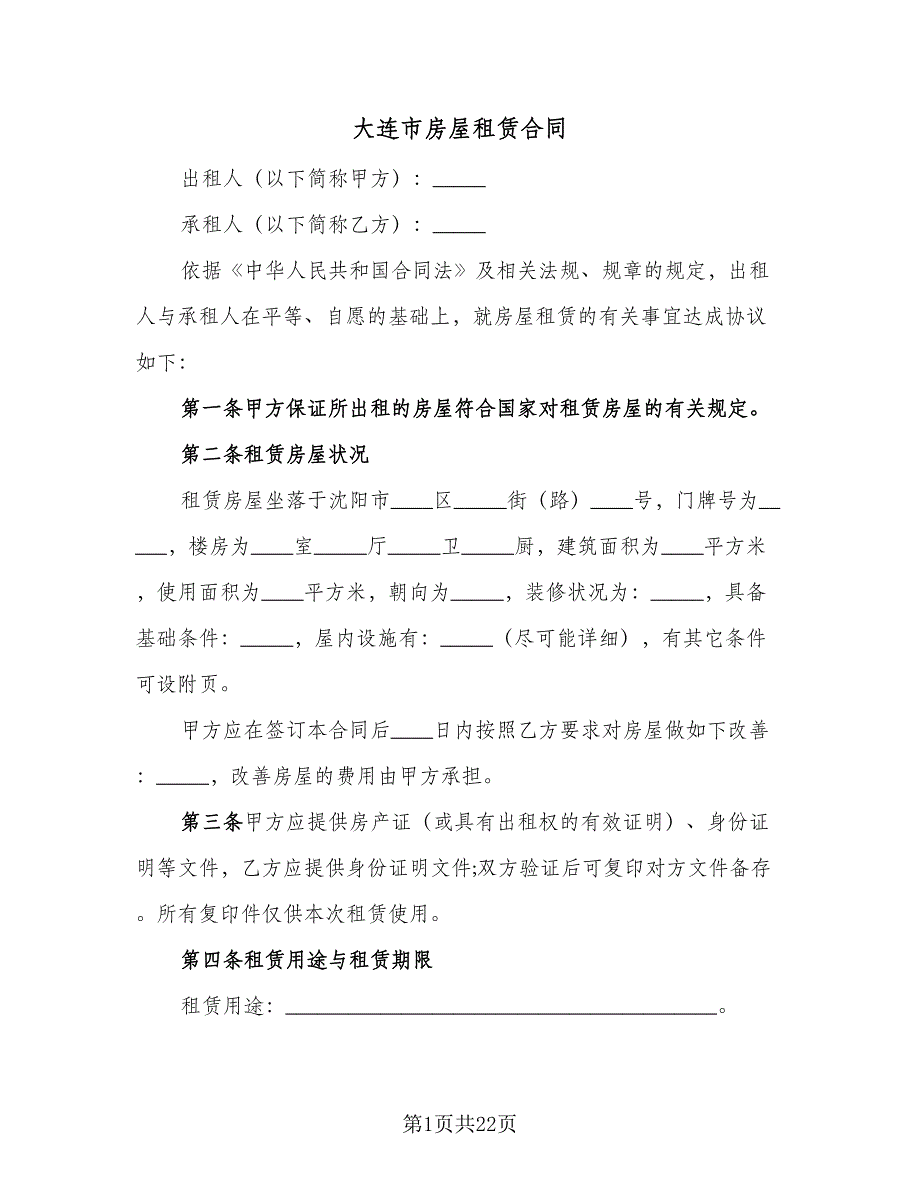 大连市房屋租赁合同
出租人（以下简称甲方）：_____
承租人（以下简称乙方）：_____
依据《中华人民共和国合同法》及相关法规、规章的规定，出租
人与承租人在平等、自愿的基础上，就房屋租赁的有关事宜达成协议
如下：
第一条甲方保证所出租的房屋符合国家对租赁房屋的有关规定。
第二条租赁房屋状况
租赁房屋坐落于沈阳市____区_____街（路）____号，门牌号为__
___，楼房为____室_____厅_____卫_____厨，建筑面积为____平方米
，使用面积为____平方米，朝向为_____，装修状况为：_____，具备
基础条件：_____，屋内设施有：_____（尽可能详细），有其它条件
可设附页。
甲方应在签订本合同后____日内按照乙方要求对房屋做如下改善
：_____，改善房屋的费用由甲方承担。
第三条甲方应提供房产证（或具有出租权的有效证明）、身份证
明等文件，乙方应提供身份证明文件;双方验证后可复印对方文件备存
。所有复印件仅供本次租赁使用。
第四条租赁用途与租赁期限
租赁用途：_________________________________________。
第1页共22页